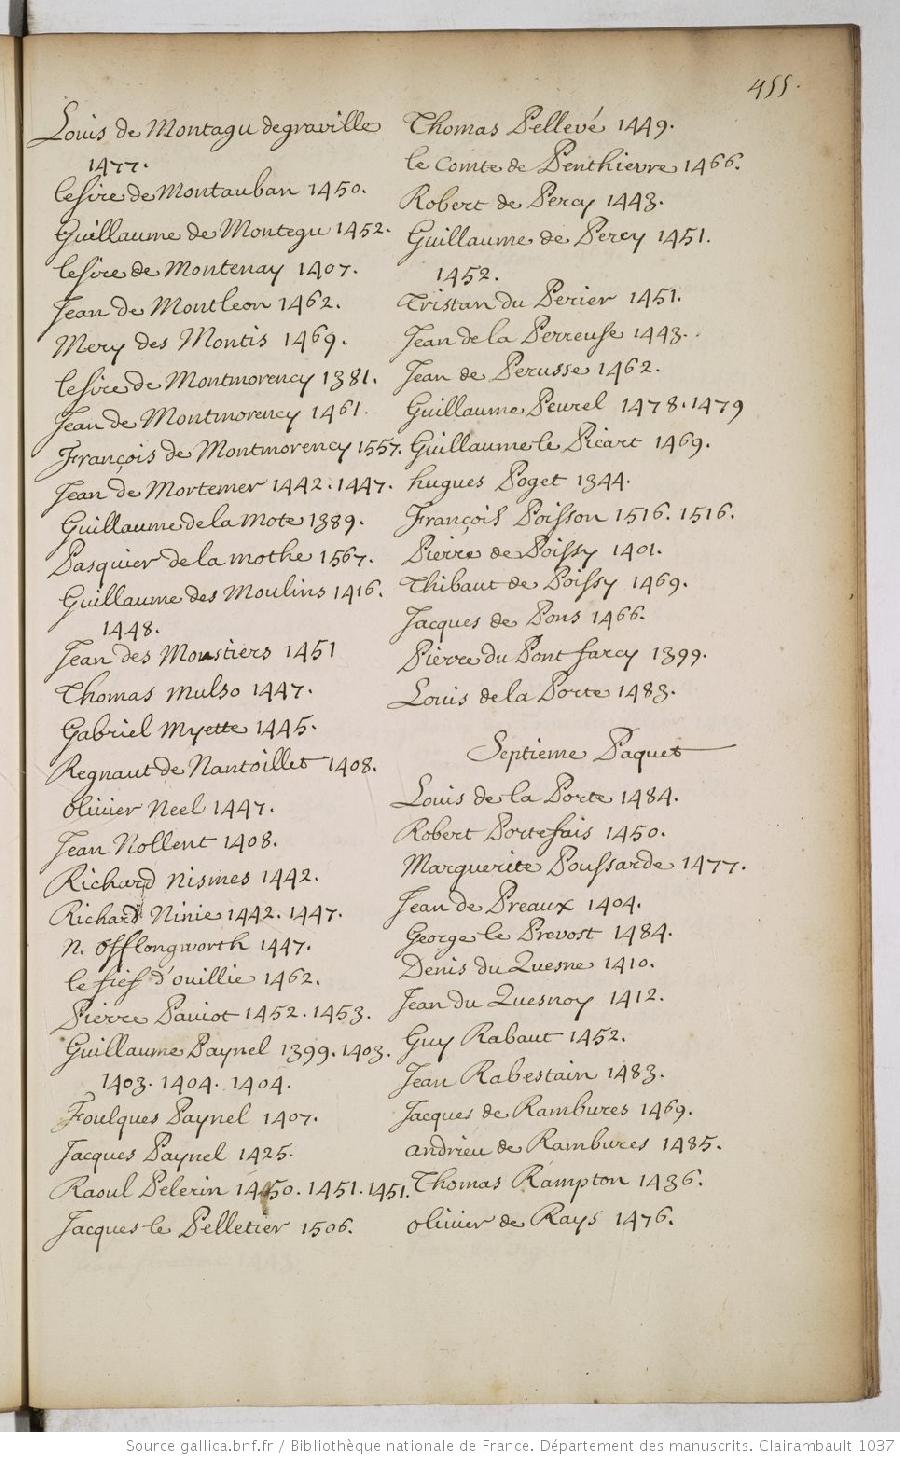 455.
Louis de Montagu de graville
1477.
le sire de Montauban 1450.
Guillaume de Montegu 1452.
le sire de Montenay 1407.
Jean de Montleon 1462.
Mery des Montis 1469.
le sire de Montmorency 1381.
Jean de Montmorency 1461.
François de Montmorency 1557.
Jean de Mortemer 1442. 1447.
Guillaume de la Mote 1389.
Pasquier de la mothe 1567.
Guillaume des Moulins 1416.
1448.
Jean des Moustiers 1451
Thomas Mulso 1447.
Gabriel Myette 1445.
Regnaut de Nantoillet 1408.
Olivier Neel 1447.
Jean Nollent 1408.
Richard Nismes 1442.
Richard Ninie 1442. 1447.
N. Offlongworth 1447.
le fief d'ouillie 1462.
Pierre Paviot 1452. 1453.
Guillaume Paynel 1399. 1403.
1403. 1404. 1404.
Foulques Paynel 1407.
Jacques Paynel 1425.
Raoul Pelerin 1450. 1451. 1451.
Jacques le Pelletier 1506.
Thomas Pellevé 1449.
le Comte de Penthievre 1466.
Robert de Percy 1443.
Guillaume de Percy 1451.
1452.
Tristan du Perier 1451.
Jean de la Perreuse 1443.
Jean de Perusse 1462.
Guillaume Peurel 1478. 1479
Guillaume le Picart 1469.
hugues Poget 1344.
François Poisson 1516. 1516.
Pierre de Poissy 1401.
Thibaut de Poissy 1469.
Jacques de Pons 1466.
Pierre du Pont farcy 1399.
Louis de la Porte 1483.
Septieme Paquet
Louis de la Porte 1484.
Robert Portefais 1450.
Marguerite Poussarde 1477.
Jean de Preaux 1404.
George le Prevost 1484.
Denis du Quesne 1410.
Jean du Quesnoy 1412.
Guy Rabaut 1452.
Jean Rabestain 1483.
Jacques de Rambures 1469.
andrieu de Rambures 1485.
Thomas Rampton 1436.
olivier de Rays 1476.
Source gallica.bnf.fr / Bibliothèque nationale de France. Département des manuscrits. Clairambault 1037